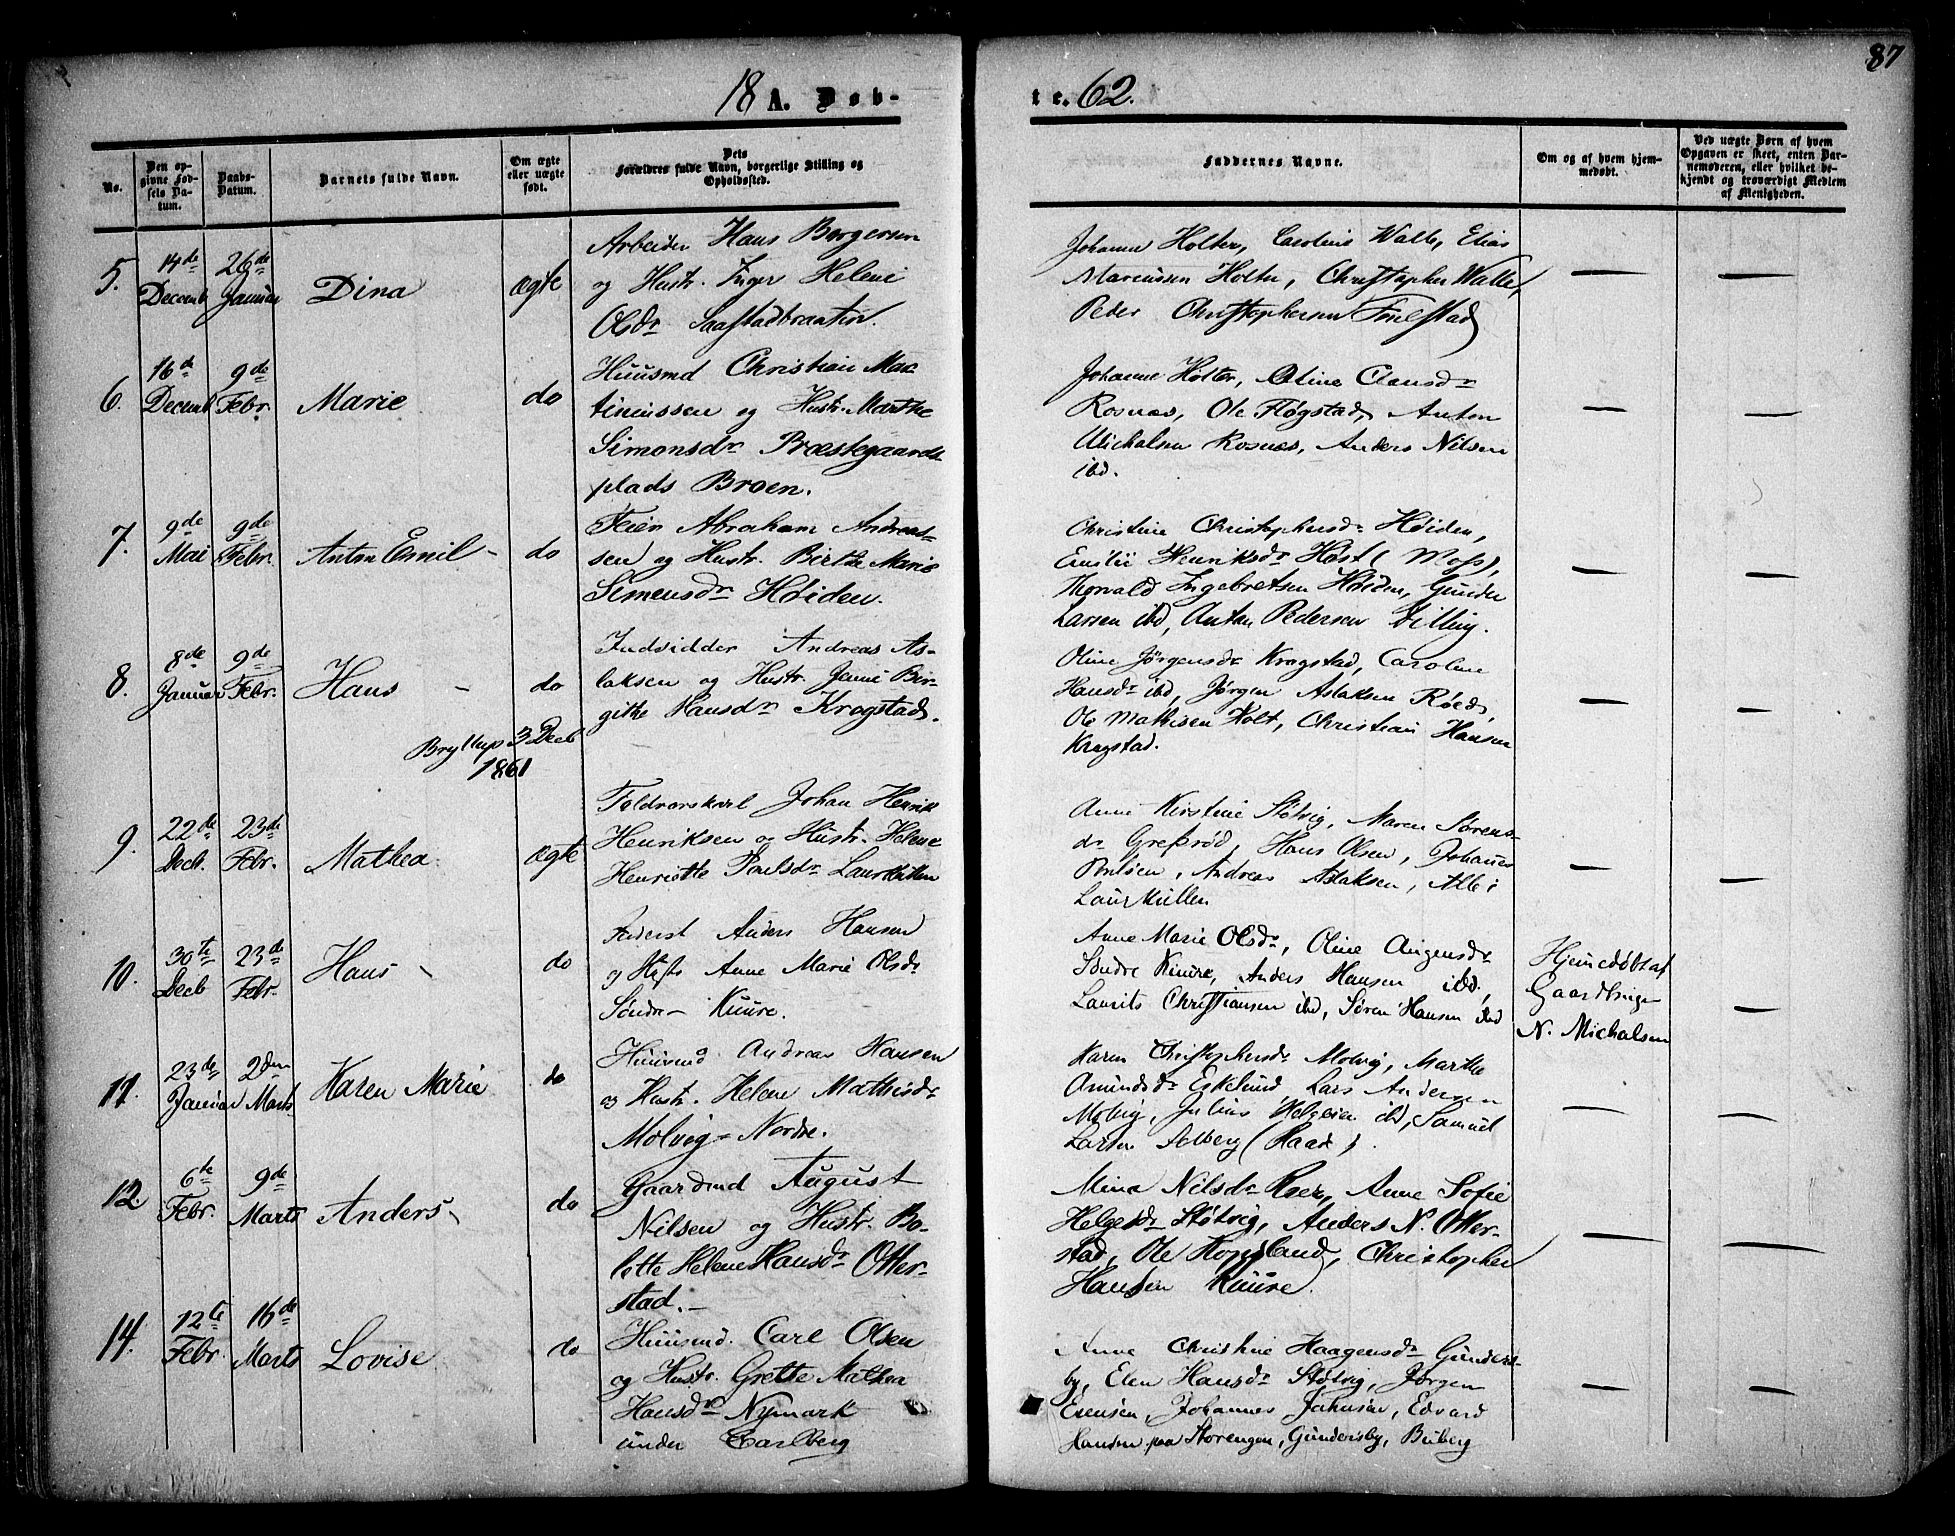 87
18 A. Døb-
te. 62.
No.
Den op-
givne Fød-
sels Da-
tum.
Daabs-
Datum.
Barnets fulde Navn.
Om ægte
eller uægte
født.
Dets
Forældres fulde Navn, borgerlige Stilling og
Opholdssted.
Faddernes Navne.
Om og af hvem hjem-
medøbt.
Ved uægte Børn af hvem
Opgaven er skeet, enten Bar-
nemoderen, eller hvilket be-
kjendt og troværdigt Medlem
af Menigheden.
5.
14de
Decemb
26de
Januar
Dina
ægte
Arbeider Hans Borgersen
og Hustr. Inger Helene
Olsdr Saastadbraaten.
Johanne Holter, Caroline Walle, Elias
Marcussen Holter, Christopher Walle,
Peder Christophersen
6.
16de
Decemb
9de
Febr.
Marie
do
Huusmd Christian Mar
tinussen og Hustr. Marthe
Simonsdr Præstegaards
plads Broen.
Johanne Holter, Oline Clausdr
Rosnæs, Ole Fløgstad, Anton
Michalsen Rosnæs, Anders Nilsen
ibd.
7.
9de
Mai
9de
Febr.
Anton Emil -
do
Feier Abraham Andreas-
sen og Hustr. Birthe Marie
Simensdr Høiden.
Christine Christophersdr Høiden,
Emilie Henriksdr Høst (Moss),
Thorvald Ingebretsen Høiden, Gunder
Larsen ibd, Anton Pedersen Dilling.
8.
8de
Januar
9de
Febr.
Hans -
do
Indsidder Andreas As-
laksen og Hustr. Jenne Bir-
githe Hansdr Krogstad.
Bryllup 3 Decb
1861
Oline Jørgensdr Krogstad, Caroline
Hansdr ibd, Jørgen Aslaksen Røed,
Ole Mathisen Holt, Christian Hansen
Krogstad.
9.
22de
Decb.
23de
Febr.
Mathea
ægte
Toldrorskarl Johan Henrik
Henriksen og Hustr. Helene
Henriette Paulsdr Laurkullen
Anne Kirstine Støtvig, Maren Sørens-
dr Grefsrød, Hans Olsen, Johannes
Poulsen, Andreas Aslaksen, Alle i
Laurkullen
10.
30te
Decb
23de
Febr.
Hans -
do
Føderst Anders Hansen
og Hustr Anne Marie Olsdr
Søndre - Kuure.
Anne Marie Olsdr, Oline
Søndre Kuure, Anders Hansen ibd,
Laurits Christiansen ibd, Søren Hansen ibd
Hjemedøbt af
Gaardbruger
N. Michalsen
11.
23de
Januar
2den
Marts
Karen Marie
do
Huusmd Andreas Hansen
og Hustr. Helene Mathisdr
Molvig - Nordre.
Karen Christophersdr Molvig, Marthe
Amundsdr Eskelund, Lars Andersen
Molvig, Julius Helgesen ibd, Samuel
Larsen Solberg (Raade).
12.
6te
Febr.
9de
Marts
Anders -
do
Gaardmd August
Nilsen og Hustr. Bo-
lette Helene Hansdr Otter-
stad. -
Mina Nilsdr Roer, Anne Sofie
Helgesdr Støtvig, Anders N. Otter-
stad, Ole Kopsland, Christopher
Hansen Kuure.
14.
12te
Febr.
16de
Marts
Lovise
do
Huusmd. Carl Olsen
og Hustr. Grette Mathea
Hansdr Nymark
under Carlberg
Anne Christine Haagensdr Gunders-
by, Elen Hansdr Støtvig, Jørgen
Evensen, Johannes Johnsen, Edvard
Hansen paa Storengen, Gundersby, Buberg